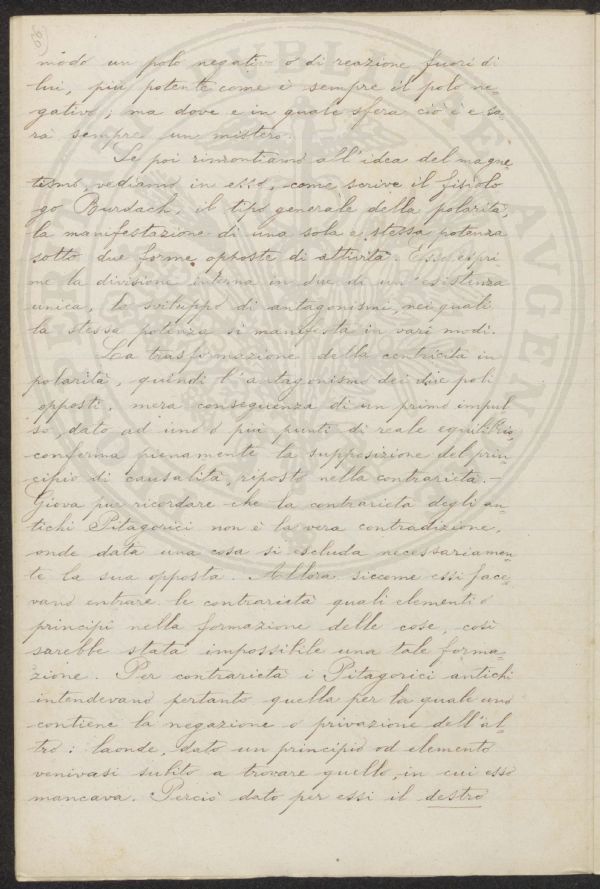 modo un polo negativo o di reazione fuori di
lui, più potente come è sempre il polo ne-
gativo; ma dove e in quale sfera ciò è e sa-
rà sempre un mistero.
Se poi rimontiamo all'idea del magne-
tismo, vediamo in esso, come scrive il fisiolo
go Burdach, il tipo generale della polarità,
la manifestazione di una sola e stessa potenza
sotto due forme opposte di attività. Esso espri
me la divisione interna in due di un'esistenza
unica, lo sviluppo di antagonismi, nei quali
la stessa potenza si manifesta in vari modi.
La trasformazione della centricità in
polarità, quindi l'antagonismo dei due poli
opposti, mera conseguenza di un primo impul
so, dato ad uno o più punti di reale equilibrio,
conferma pienamente la supposizione del prin-
cipio di causalità, riposto nella contrarietà. -
Giova pur ricordare che la contrarietà degli an-
tichi Pitagorici non è la vera contradizione,
onde data una cosa si escluda necessariamen-
te la sua opposta. Allora siccome essi face-
vano entrare le contrarietà quali elementi o
principi nella formazione delle cose, così
sarebbe stata impossibile una tale forma-
zione. Per contrarietà i Pitagorici antichi
intendevano pertanto quella per la quale uno
contiene la negazione o privazione dell'al-
tro: laonde, dato un principio od elemento
venivasi subito a trovare quello, in cui esso
mancava. Perciò dato per essi il destro